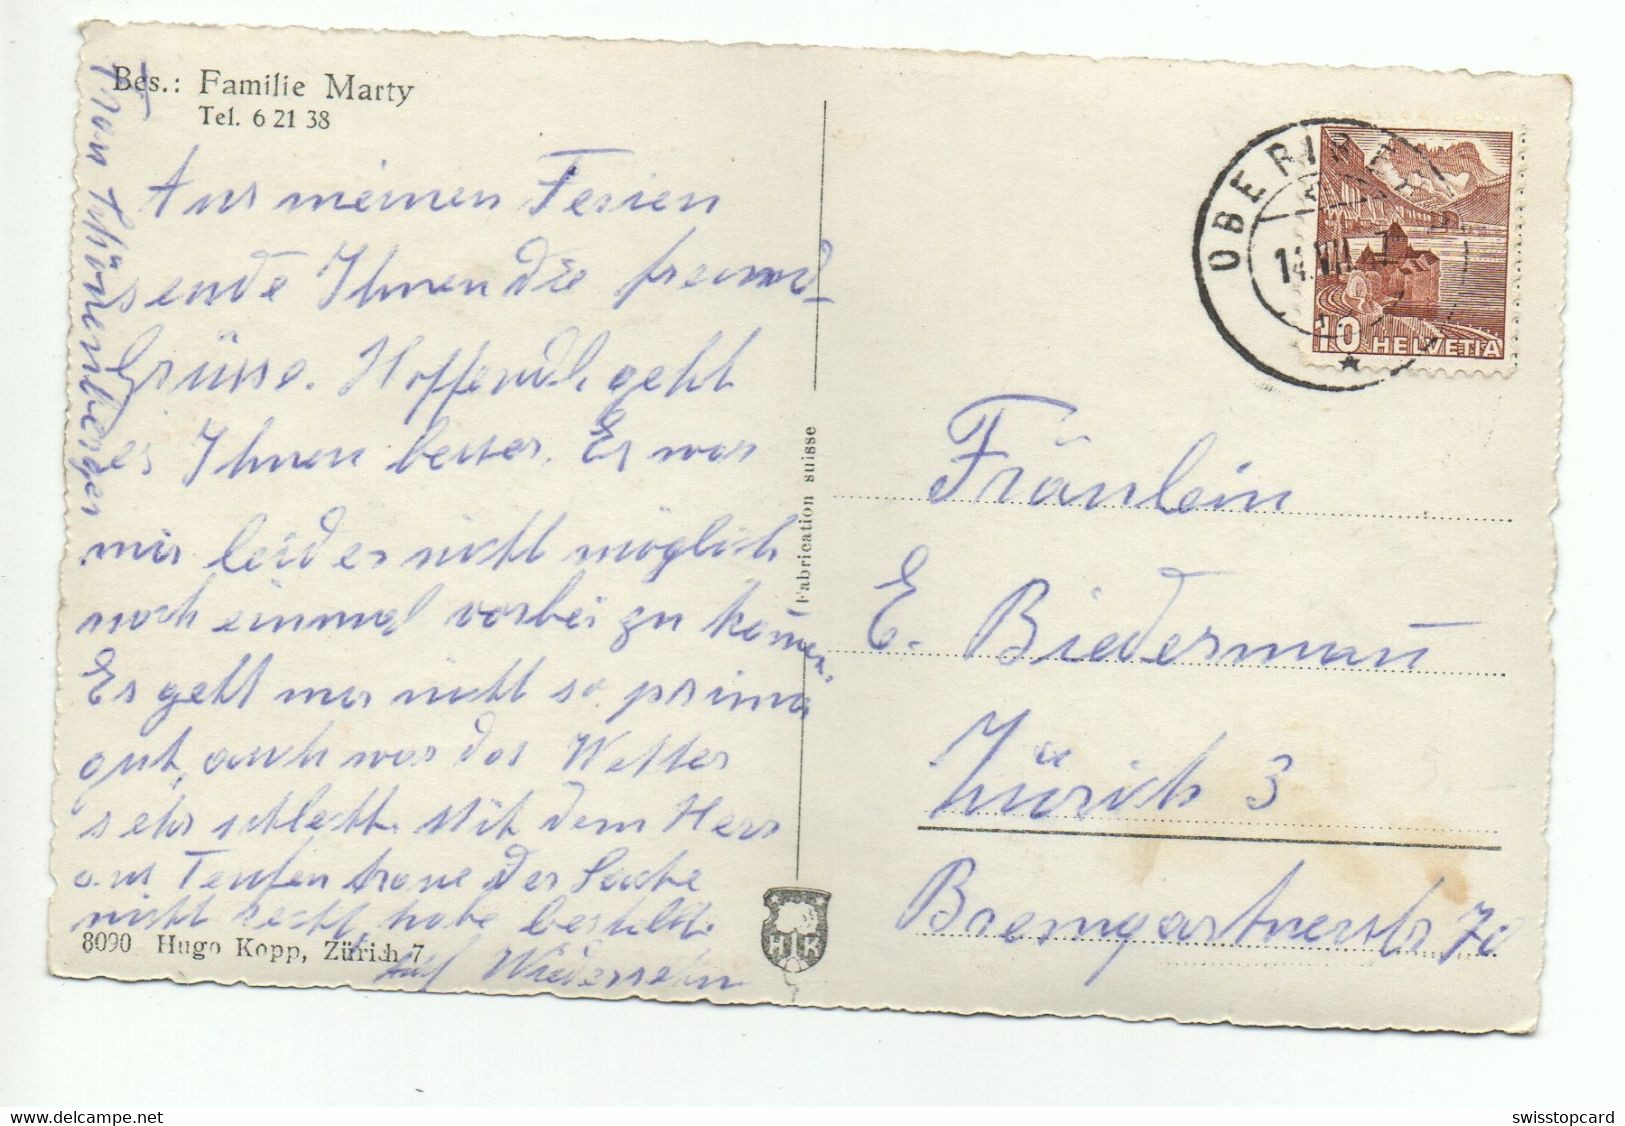 Bes.: Familie Marty
Tel. 6 21 38
Aus meinen Ferien
sende Ihnen die freund-
Grüsse. Hoffendl. geht
es Ihnen besser. Es war
mir leider nicht möglich
noch einmal vorbei zu komen.
Es geht mir nicht so prima
gut, auch war das Wetter
sehr schlecht. Mit dem Herr
aus Teufen traue der Sache
nicht recht, habe bestellt.
Auf Wiedersehn
Frau Schönenberger
8090 Hugo Kopp, Zürich 7
Fabrication suisse
HK
OBERI
14.VII.
10 HELVETIA
Fräulein
E. Biedermañ
Zürich 3
Bremgartnerstr 70
www.delcampe.net
swisstopcard